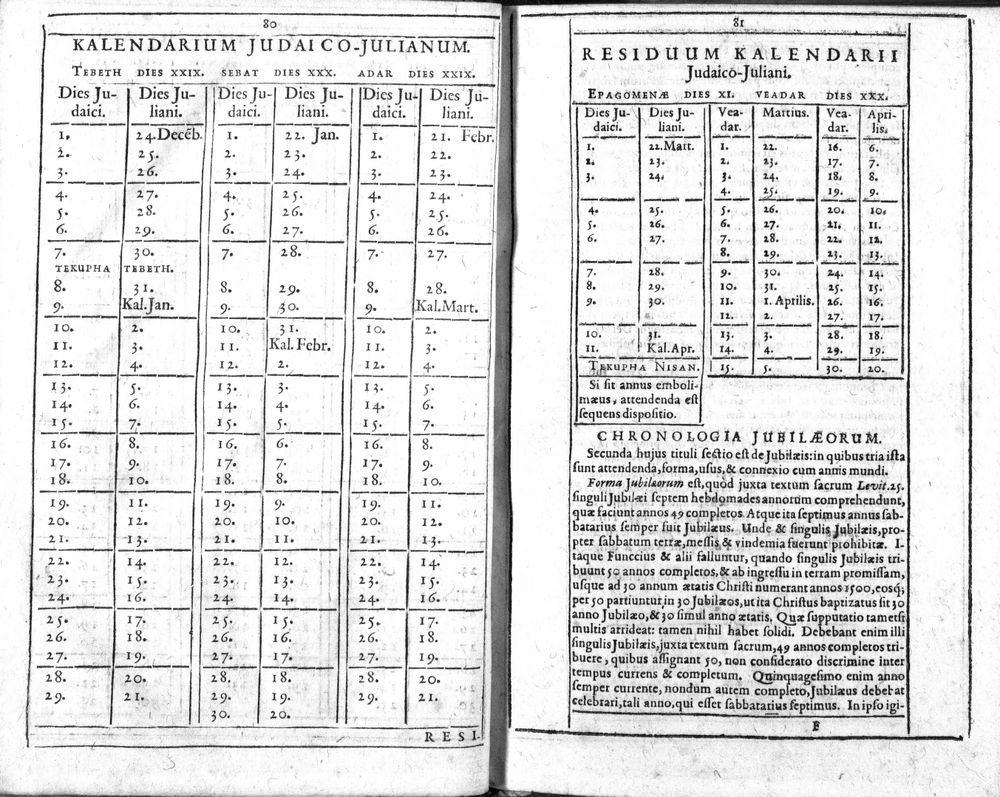 80
KALENDARIUM JUDAICO-JULIANUM.
TEBETH DIES XXIX. SEBAT DIES XXX. ADAR DIES XXIX.
Dies Ju- Dies Ju- Dies Ju- Dies Ju- Dies Ju- Dies Ju-
daici. liani. daici. liani. daici. liani.
1. 24.Decēb. 1. 22. Jan. 1. 21. Febr.
2. 25. 2. 23. 2. 22.
3. 26. 3. 24. 3. 23.
4. 27. 4. 25. 4. 24.
5. 28. 5. 26. 5. 25.
6. 29. 6. 27. 6. 26.
7. 30. 7. 28. 7. 27.
TEKUPHA TEBETH.
8. 31. 8. 29. 8. 28.
9. Kal.Jan. 9. 30. 9. Kal.Mart.
10. 2. 10. 31. 10. 2.
11. 3. 11. Kal.Febr. 11. 3.
12. 4. 12. 2. 12. 4.
13. 5. 13. 3. 13. 5.
14. 6. 14. 4. 14. 6.
15. 7. 15. 5. 15. 7.
16. 8. 16. 6. 16. 8.
17. 9. 17. 7. 17. 9.
18. 10. 18. 8. 18. 10.
19. 11. 19. 9. 19. 11.
20. 12. 20. 10. 20. 12.
21. 13. 21. 11. 21. 13.
22. 14. 22. 12. 22. 14.
23. 15. 23. 13. 23. 15.
24. 16. 24. 14. 24. 16.
25. 17. 25. 15. 25. 17.
26. 18. 26. 16. 26. 18.
27. 19. 27. 17. 27. 19.
28. 20. 28. 18. 28. 20.
29. 21. 29. 19. 29. 21.
30. 20.
RESI
81
RESIDUUM KALENDARII
Judaico-Juliani.
EPAGOMENÆ DIES XI. VEADAR DIES XXX.
Dies Ju- Dies Ju- Vea- Martius. Vea- Apri-
daici. liani. dar. dar. lis.
1. 22.Mart. 1. 22. 16. 6.
2. 23. 2. 23. 17. 7.
3. 24. 3. 24. 18. 8.
4. 25. 19. 9.
4. 25. 5. 26. 20. 10.
5. 26. 6. 27. 21. 11.
6. 27. 7. 28. 22. 12.
8. 29. 23. 13.
7. 28. 9. 30. 24. 14.
8. 29. 10. 31. 25. 15.
9. 30. 11. 1. Aprilis. 26. 16.
12. 2. 27. 17.
10. 31. 13. 3. 28. 18.
11. Kal.Apr. 14. 4. 29. 19.
TEKUPHA NISAN. 15. 5. 30. 20.
Si sit annus emboli-
mæus, attendenda est
sequens dispositio.
CHRONOLOGIA JUBILÆORUM.
Secunda hujus tituli sectio est de Jubilæis: in quibus tria ista
sunt attendenda, forma, usus, & connexio cum annis mundi.
Forma Jubilæorum est, quòd juxta textum sacrum Levit.25.
singuli Jubilæi septem hebdomades annorum comprehendunt,
quæ faciunt annos 49 completos. Atque ita septimus annus sab-
batarius semper fuit Jubilæus. Unde & singulis Jubilæis, pro-
pter sabbatum terræ, messis & vindemia fuerunt prohibitæ. I-
taque Funccius & alii falluntur, quando singulis Jubilæis tri-
buunt 50 annos completos, & ab ingressu in terram promissam,
usque ad 30 annum ætatis Christi numerant annos 1500, eosq;
per 50 partiuntur in 30 Jubilæos, ut ita Christus baptizatus sit 30
anno Jubilæo, & 30 simul anno ætatis. Quæ supputatio tametsi
multis arrideat: tamen nihil habet solidi. Debebant enim illi
singulis Jubilæis, juxta textum sacrum, 49 annos completos tri-
buere, quibus assignant 50, non considerato discrimine inter
tempus currens & completum. Quinquagesimo enim anno
semper currente, nondum autem completo, Jubilæus debebat
celebrari, tali anno, qui esset sabbatarius septimus. In ipso igi-
F